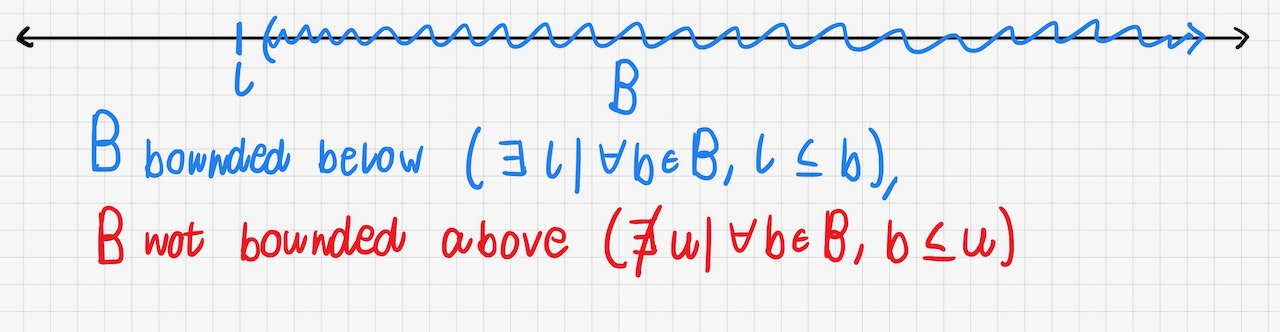 l
B
B bounded below (∃ l | ∀b∈B, l ≤ b),
B not bounded above (∄ u | ∀b∈B, b ≤ u)